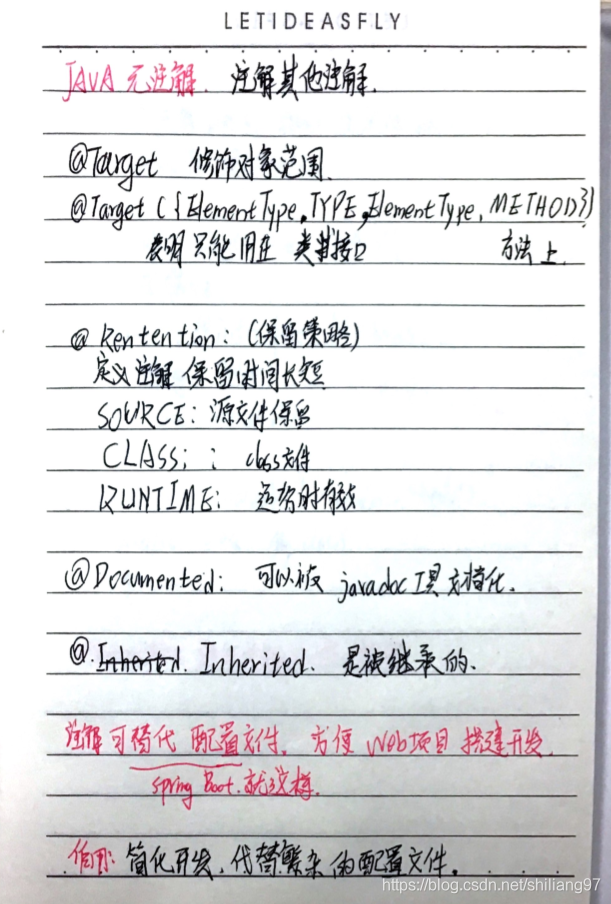 LETIDEASFLY
JAVA 元注解. 注解其他注解.
@Target 修饰对象范围.
@Target ({ElementType.TYPE,ElementType.METHOD})
表明 只能 用在 类或接口 方法 上.
@ Rentention: (保留策略)
定义注解 保留时间长短
SOURCE: 源文件保留
CLASS: : class文件
RUNTIME: 运行时有效
@Documented: 可以被 javadoc工具文档化.
@.Inherited. Inherited. 是被继承的.
注解可替代 配置文件. 方便 Web项目 搭建开发.
spring Boot.就这样.
作用: 简化开发,代替繁杂的配置文件.
https://blog.csdn.net/shiliang97